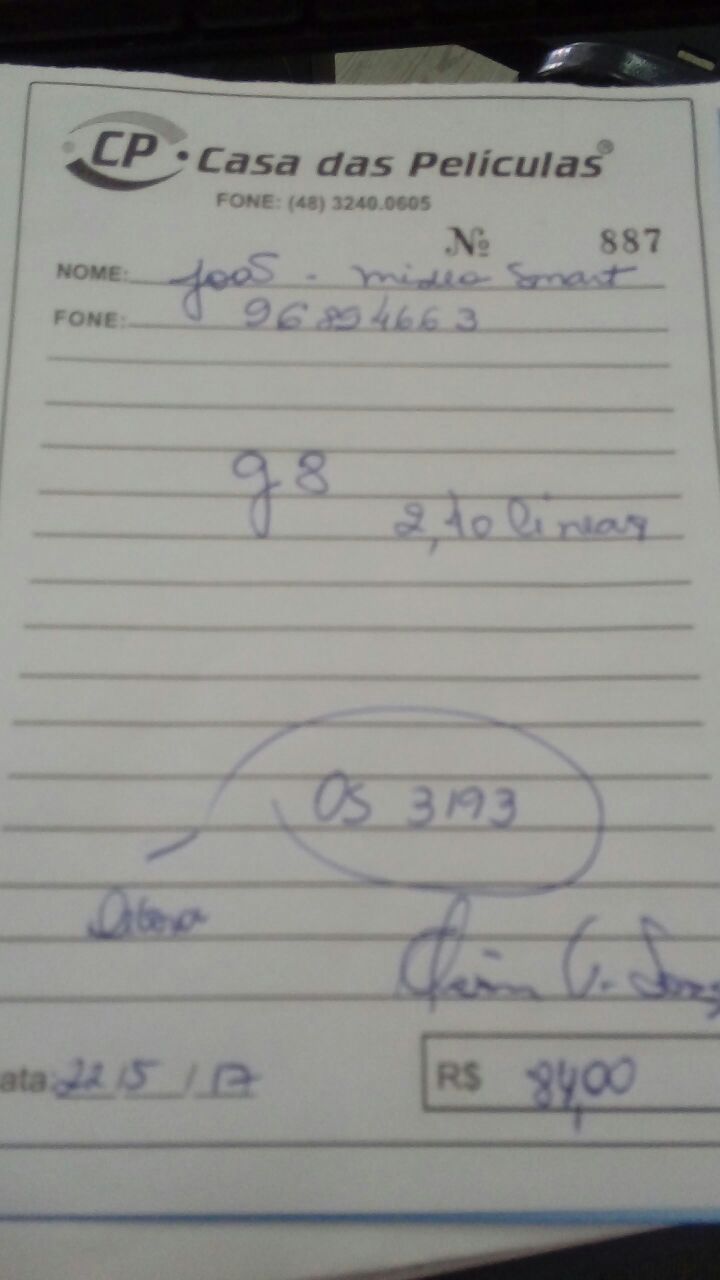 CP • Casa das Películas®
FONE: (48) 3240.0605
Nº 887
NOME: João - midea Smart
FONE: 96894663
g8
2,10 linear
OS 3193
ata: 22/5/17
R$ 84,00